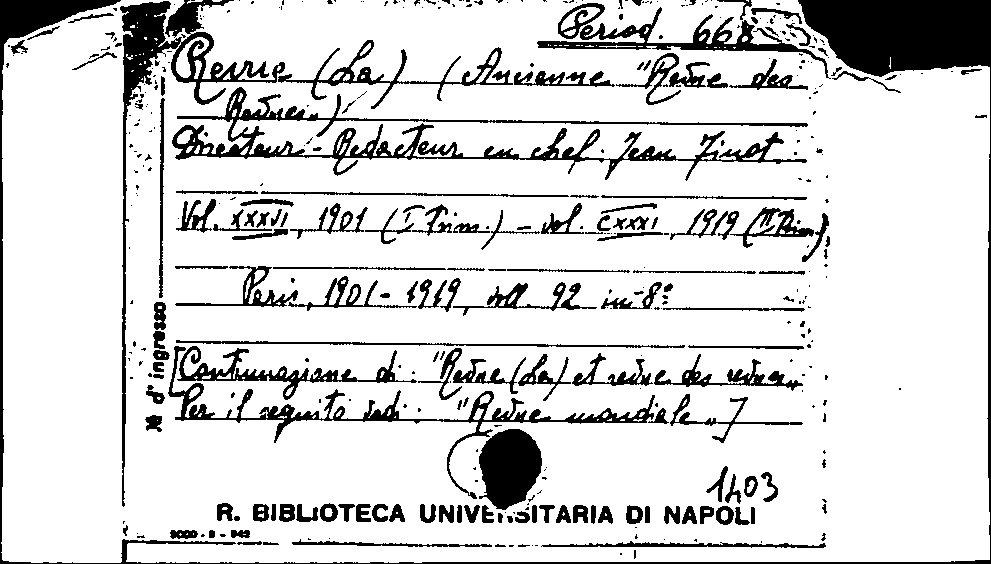 Period. 668
Revue (La) (Ancienne "Revue des
Revues")
Directeur-Rédacteur en chef: Jean Finot.
Vol. XXXVI, 1901 (I Trim.) - vol. CXXXI, 1919 (II Trim.)
Paris, 1901-1919, voll. 92 in-8º
[Continuazione di: "Revue (La) et revue des revues"
Per il seguito vedi: "Revue mondiale"]
1403
R. BIBLIOTECA UNIVERSITARIA DI NAPOLI
№ d'ingresso